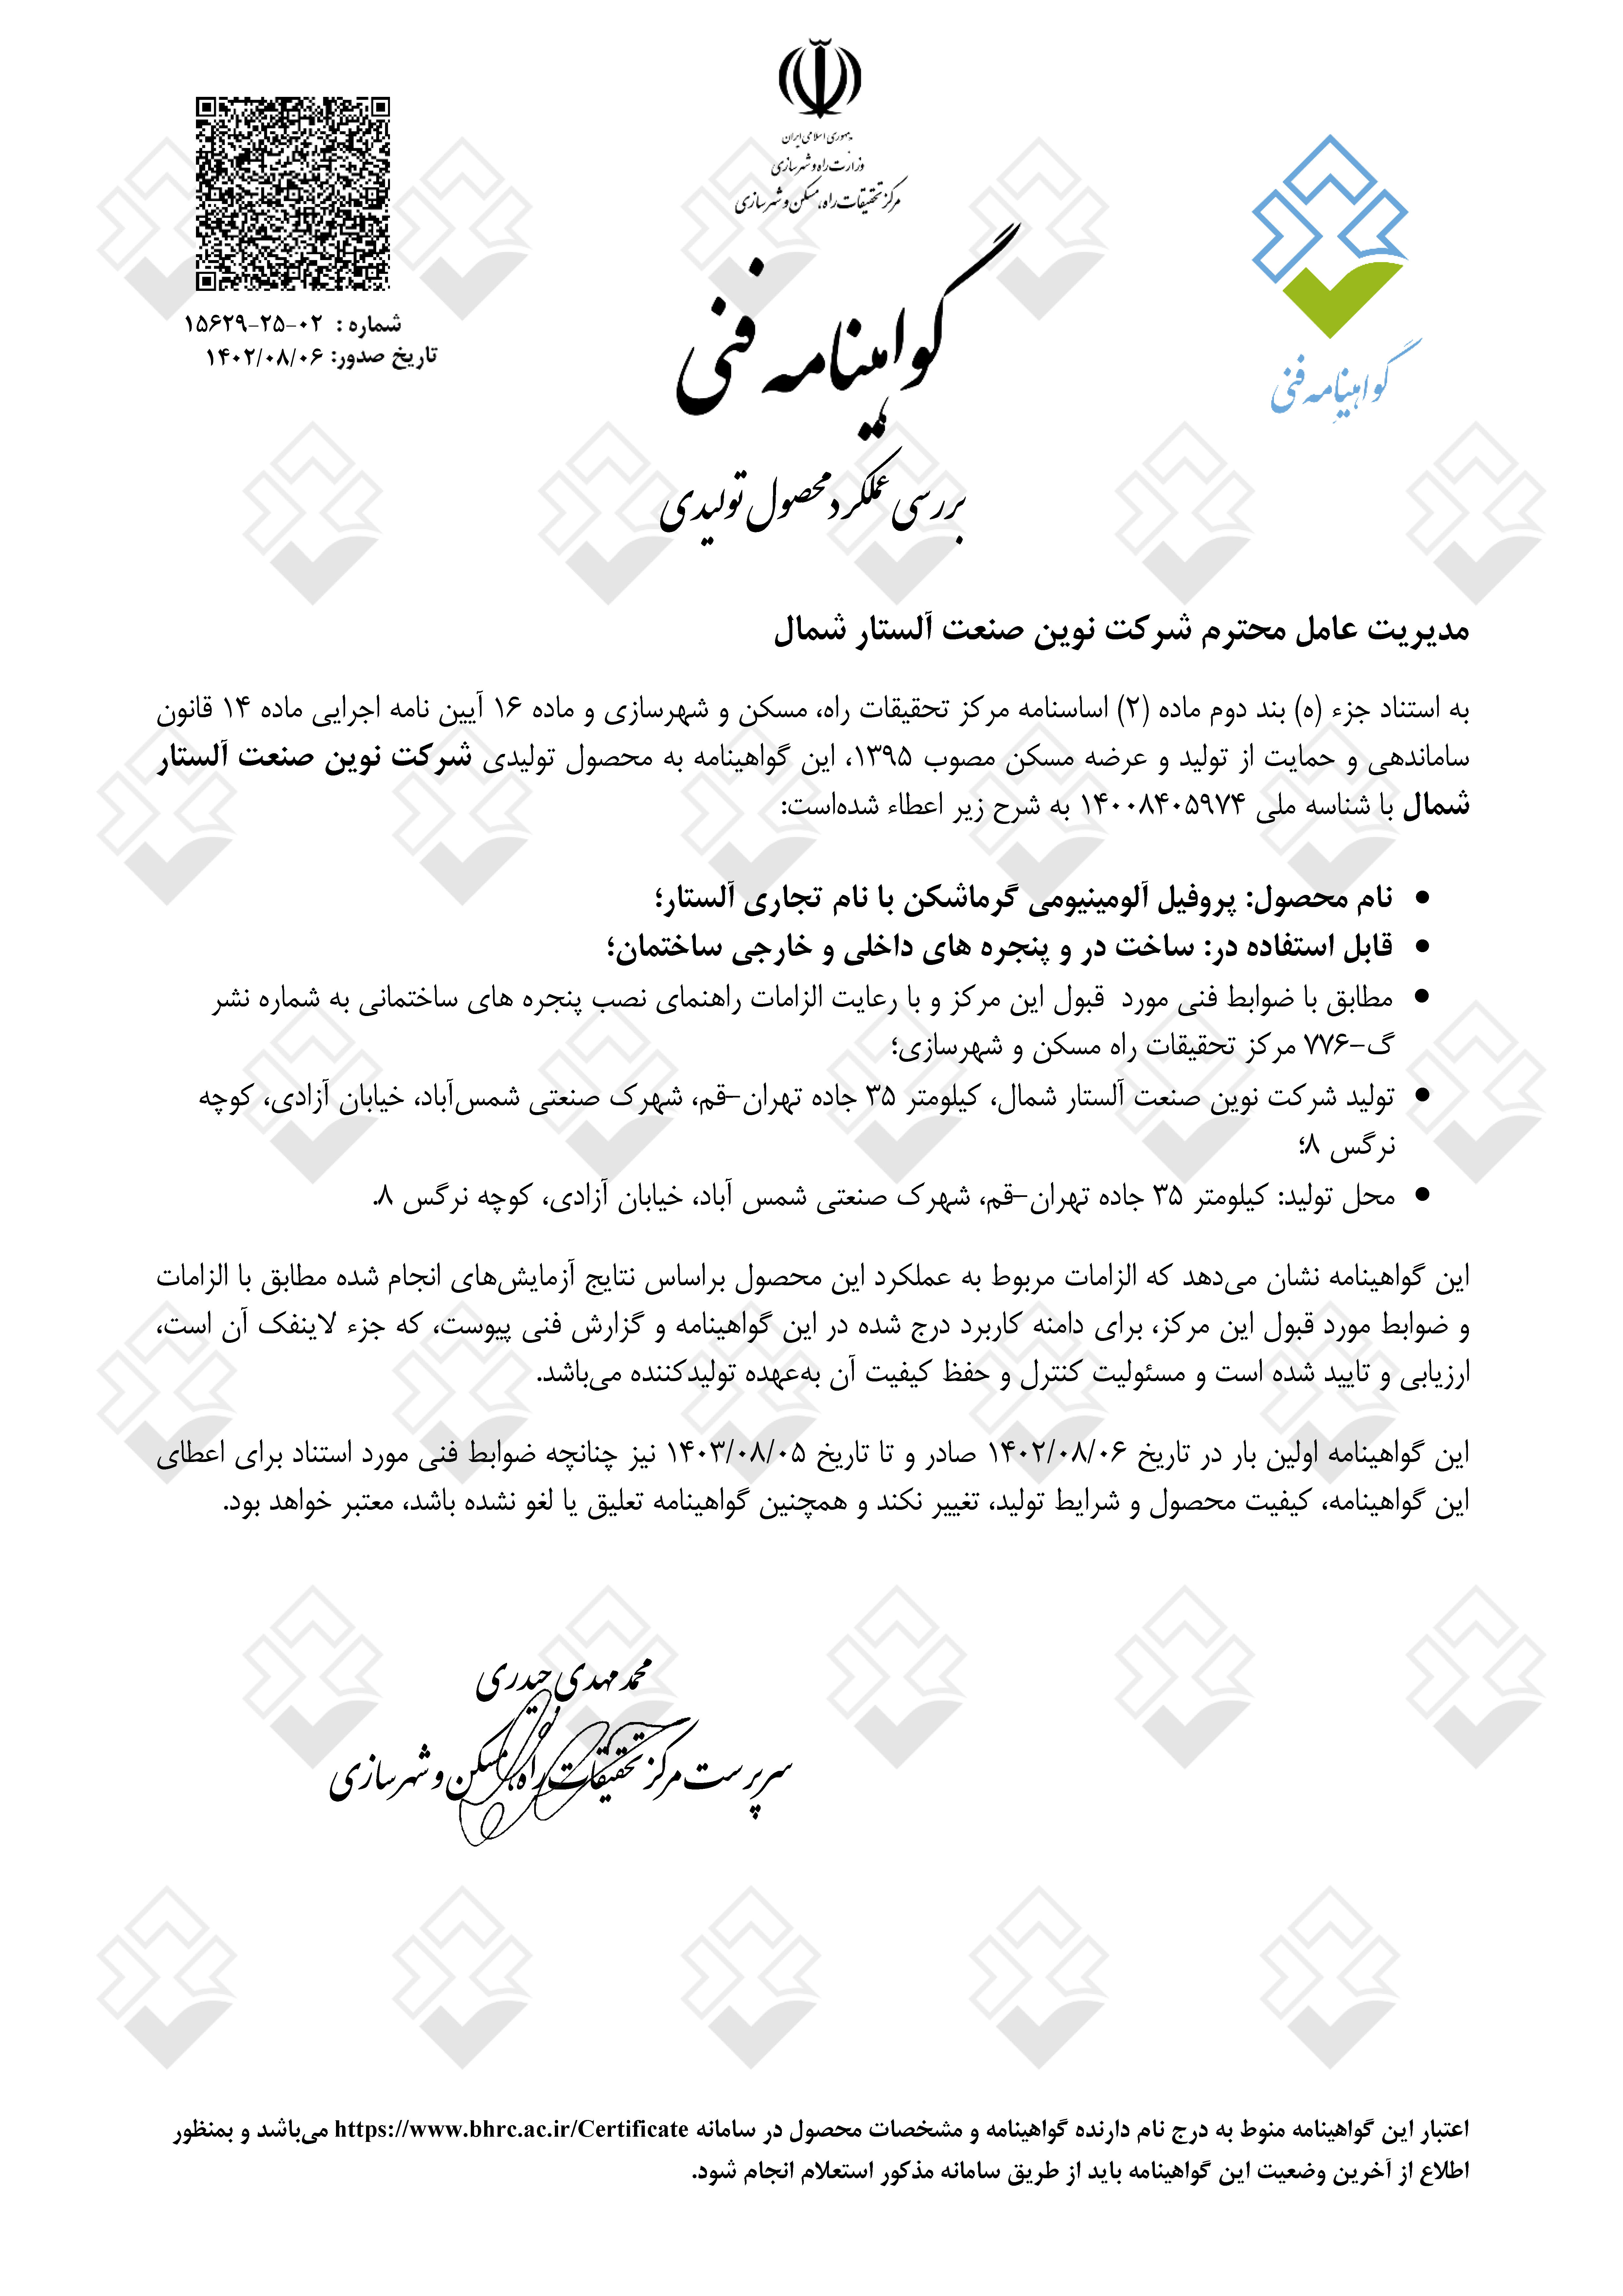 جمهوری اسلامی ایران
وزارت راه و شهرسازی
مرکز تحقیقات راه، مسکن و شهرسازی
گواهینامه فنی
شماره : ۰۲-۲۵-۱۵۶۲۹
تاریخ صدور: ۱۴۰۲/۰۸/۰۶
گواهینامه فنی
بررسی عملکرد محصول تولیدی
مدیریت عامل محترم شرکت نوین صنعت آلستار شمال
به استناد جزء (ه) بند دوم ماده (۲) اساسنامه مرکز تحقیقات راه، مسکن و شهرسازی و ماده ۱۶ آیین نامه اجرایی ماده ۱۴ قانون
ساماندهی و حمایت از تولید و عرضه مسکن مصوب ۱۳۹۵، این گواهینامه به محصول تولیدی شرکت نوین صنعت آلستار
شمال با شناسه ملی ۱۴۰۰۸۴۰۵۹۷۴ به شرح زیر اعطاء شده‌است:
• نام محصول: پروفیل آلومینیومی گرماشکن با نام تجاری آلستار؛
• قابل استفاده در: ساخت در و پنجره های داخلی و خارجی ساختمان؛
• مطابق با ضوابط فنی مورد قبول این مرکز و با رعایت الزامات راهنمای نصب پنجره های ساختمانی به شماره نشر
گ-۷۷۶ مرکز تحقیقات راه مسکن و شهرسازی؛
• تولید شرکت نوین صنعت آلستار شمال، کیلومتر ۳۵ جاده تهران-قم، شهرک صنعتی شمس‌آباد، خیابان آزادی، کوچه
نرگس ۸؛
• محل تولید: کیلومتر ۳۵ جاده تهران-قم، شهرک صنعتی شمس آباد، خیابان آزادی، کوچه نرگس ۸.
این گواهینامه نشان می‌دهد که الزامات مربوط به عملکرد این محصول براساس نتایج آزمایش‌های انجام شده مطابق با الزامات
و ضوابط مورد قبول این مرکز، برای دامنه کاربرد درج شده در این گواهینامه و گزارش فنی پیوست، که جزء لاینفک آن است،
ارزیابی و تایید شده است و مسئولیت کنترل و حفظ کیفیت آن به‌عهده تولیدکننده می‌باشد.
این گواهینامه اولین بار در تاریخ ۱۴۰۲/۰۸/۰۶ صادر و تا تاریخ ۱۴۰۳/۰۸/۰۵ نیز چنانچه ضوابط فنی مورد استناد برای اعطای
این گواهینامه، کیفیت محصول و شرایط تولید، تغییر نکند و همچنین گواهینامه تعلیق یا لغو نشده باشد، معتبر خواهد بود.
محمد مهدی حیدری
سرپرست مرکز تحقیقات راه، مسکن و شهرسازی
اعتبار این گواهینامه منوط به درج نام دارنده گواهینامه و مشخصات محصول در سامانه https://www.bhrc.ac.ir/Certificate می‌باشد و بمنظور
اطلاع از آخرین وضعیت این گواهینامه باید از طریق سامانه مذکور استعلام انجام شود.